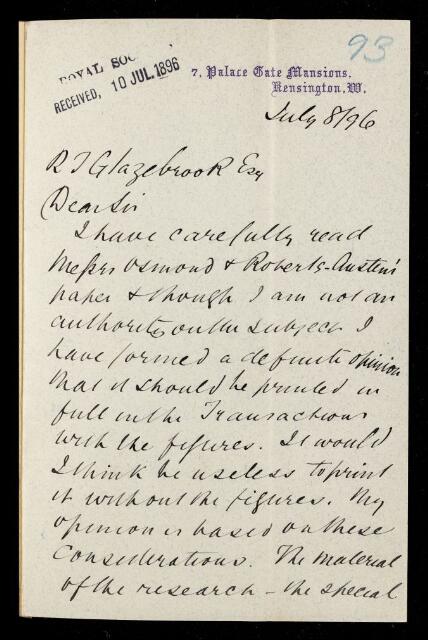 93
ROYAL SOC
RECEIVED, 10 JUL.1896
7, Palace Gate Mansions,
Kensington.W.
July 8/96
R T Glazebrook Esq
Dear Sir
I have carefully read
Messrs Osmond & Roberts-Austen's
paper & though I am not an
authority on the subject I
have formed a definite opinion
that it should be printed in
full in the Transactions
with the figures. It would
I think be useless to print
it without the figures. My
opinion is based on these
considerations. The material
of the research - the special